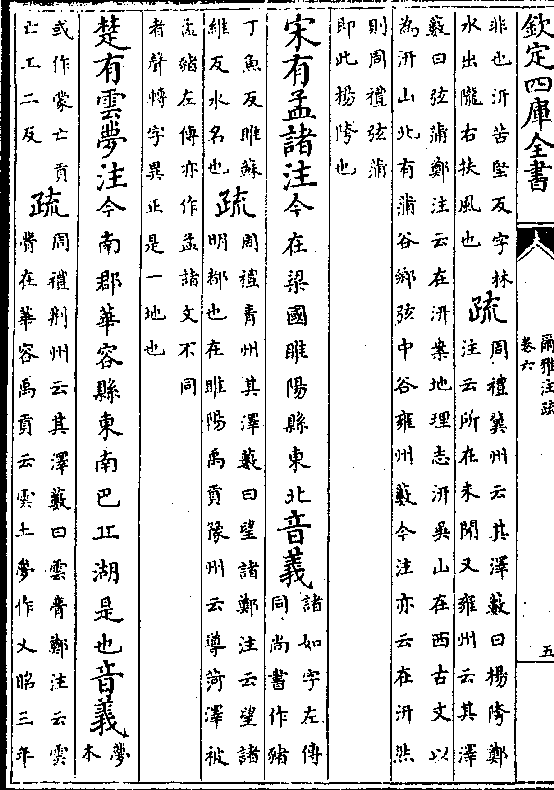 欽定四庫全書
爾雅注疏
卷六
五
非也汧苦堅反字林
水出隴右扶風也
疏
周禮冀州云其澤藪曰楊陓鄭
注云所在未聞又雍州云其澤
藪曰弦蒲鄭注云在汧案地理志汧吳山在西古文以
為汧山北有蒲谷鄉弦中谷雍州藪今注亦云在汧然
則周禮弦蒲
即此楊陓也
宋有孟諸注今在梁國睢陽縣東北音義
諸如字左傳
同尚書作豬
丁魚反睢蘇
維反水名也
疏
周禮青州其澤藪曰望諸鄭注云望諸
明都也在睢陽禹貢豫州云導菏澤被
孟豬左傳亦作孟諸文不同
者聲轉字異正是一地也
楚有雲夢注今南郡華容縣東南巴丘湖是也音義
夢
本
或作蒙亡貢
亡工二反
疏
周禮荆州云其澤藪曰雲瞢鄭注云雲
瞢在華容禹貢云雲土夢作乂昭三年